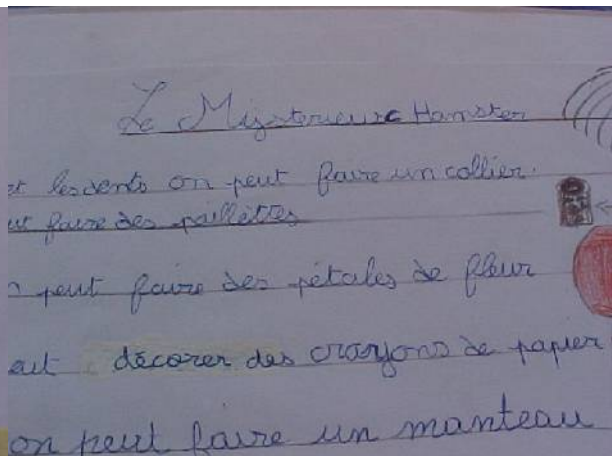 Le Mystérieuxc Hamster
et les dents on peut faire un collier.
ut faire des paillettes
n peut faire des pétales de fleur
eut décorer des crayons de papier
on peut faire un manteau